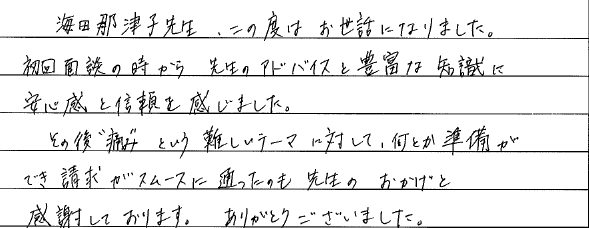 海田那津子先生、この度は お世話になりました。
初回面談の時から 先生のアドバイスと豊富な知識に
安心感と信頼を感じました。
その後“痛み”という難しいテーマに対して、何とか準備が
でき請求がスムースに通ったのも先生の おかげと
感謝しております。 ありがとうございました。